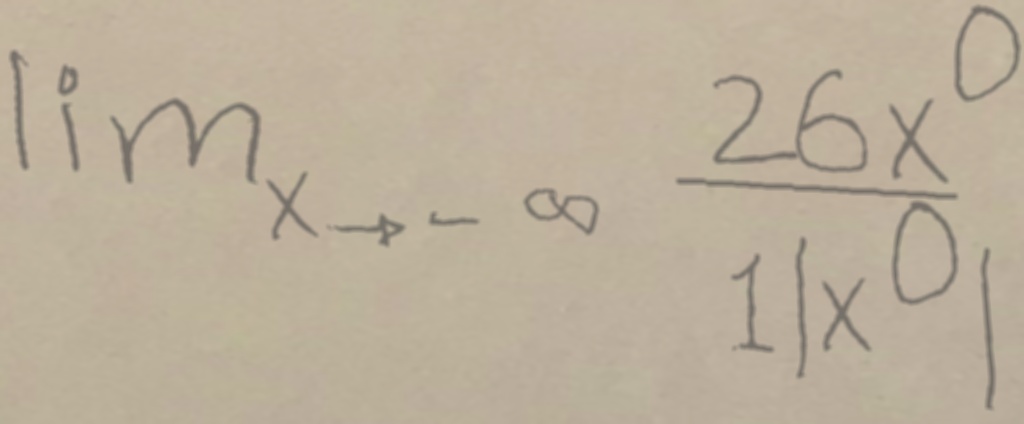 lim_{x→-∞} \frac{26x^0}{1|x^0|}